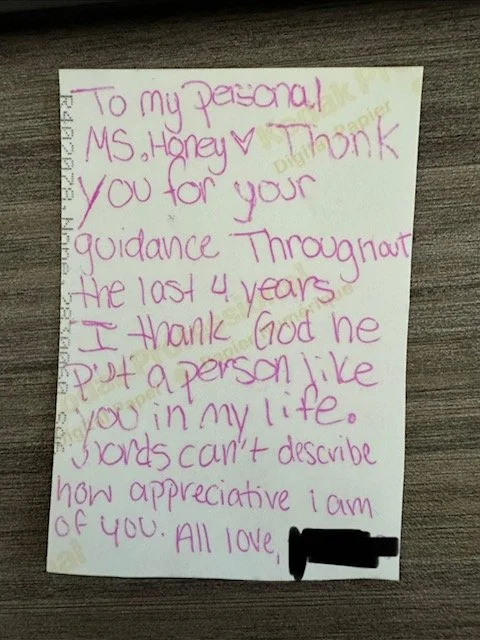 To my personal
MS. Honey♡ Thank
you for your
guidance Throughout
the last 4 years
I thank God he
put a person like
you in my life.
Words can't describe
how appreciative i am
of you. All love,
Kodak Pro
Digital Papier